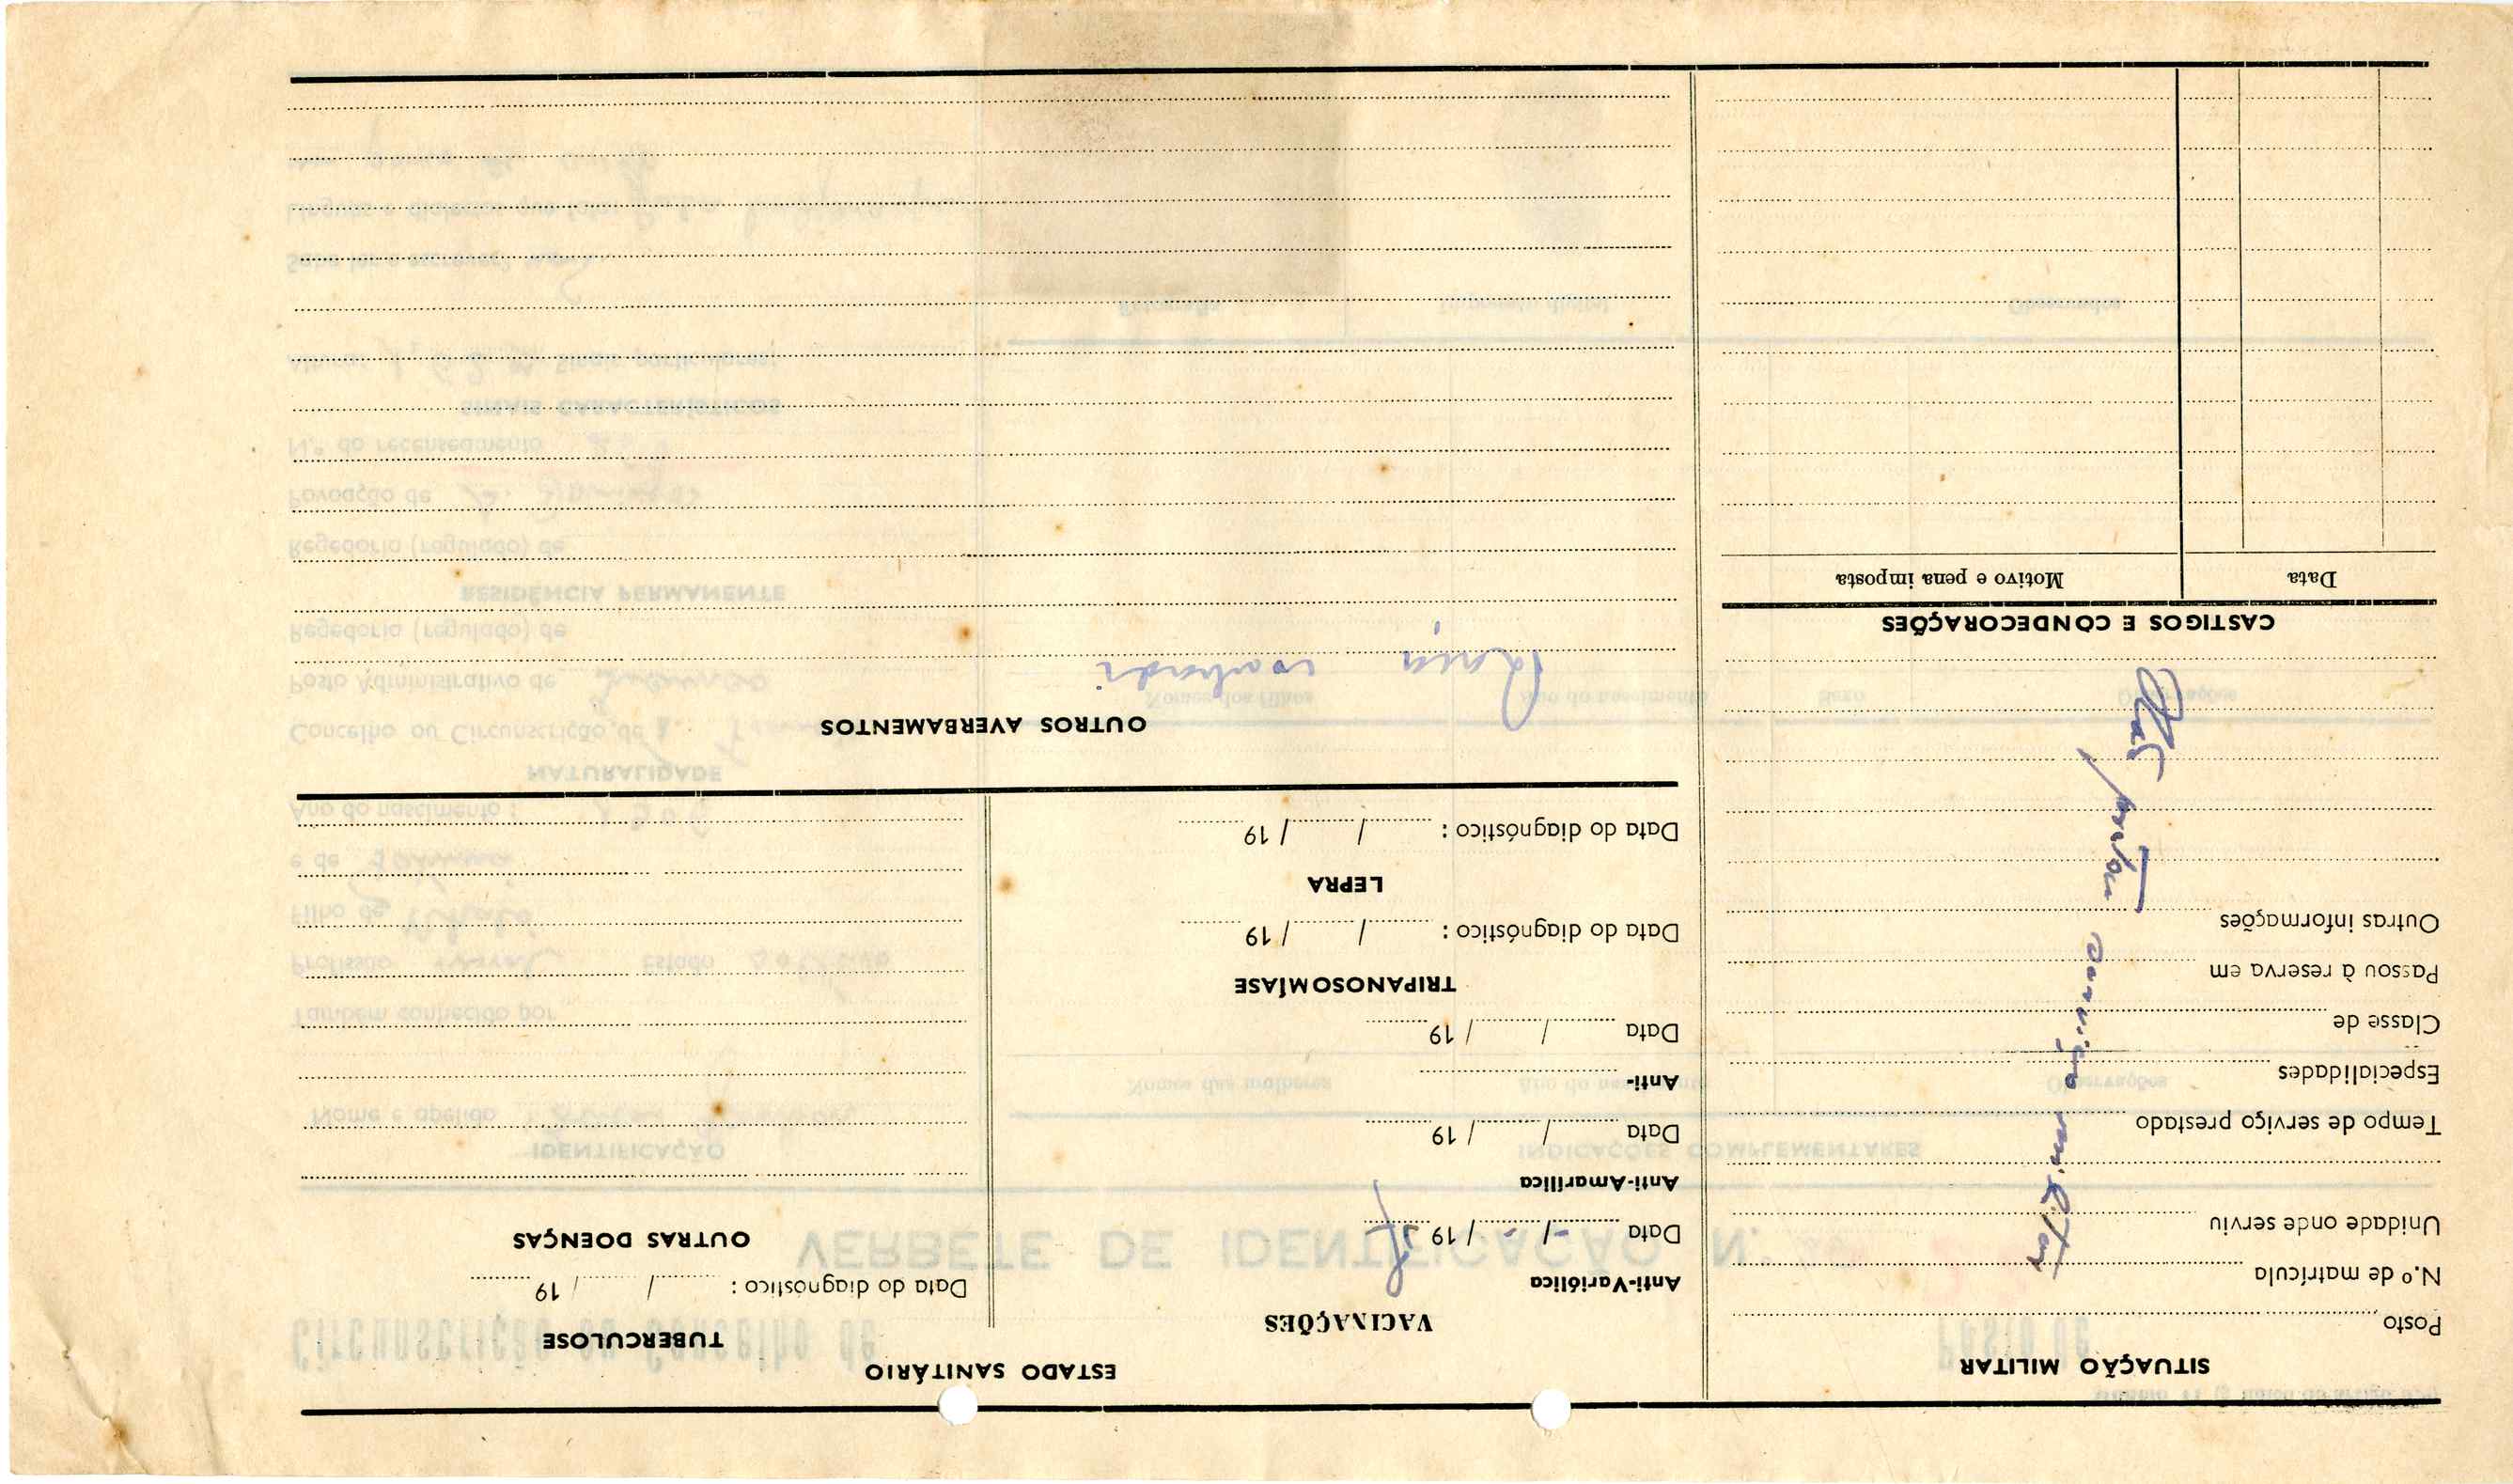 SITUAÇÃO MILITAR
Posto
N.º de matrícula
Unidade onde serviu
Tempo de serviço prestado
Especialidades
Classe de
Passou à reserva em
Outras informações
Não prestou serviço militar
CASTIGOS E CONDECORAÇÕES
Data
Motivo e pena imposta
ESTADO SANITÁRIO
VACINAÇÕES
Anti-Variólica
Data - / - / 19
Anti-Amarílica
Data / / 19
Anti-
Data / / 19
TRIPANOSOMÍASE
Data do diagnóstico : / / 19
LEPRA
Data do diagnóstico : / / 19
TUBERCULOSE
Data do diagnostico : / / 19
OUTRAS DOENÇAS
OUTROS AVERBAMENTOS
Raça